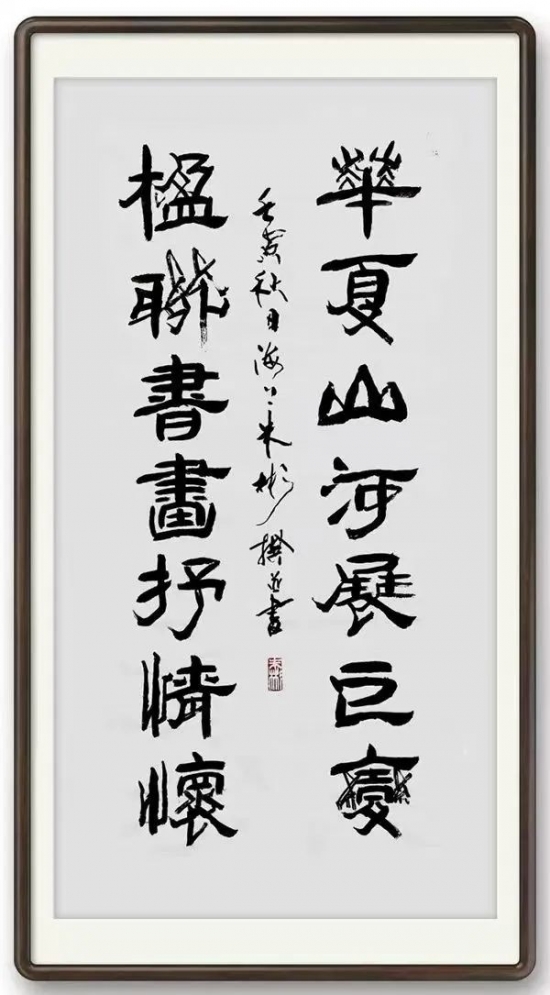 華夏山河展巨變
楹聯書畫抒情懷
壬寅秋日海上朱彬撰並書